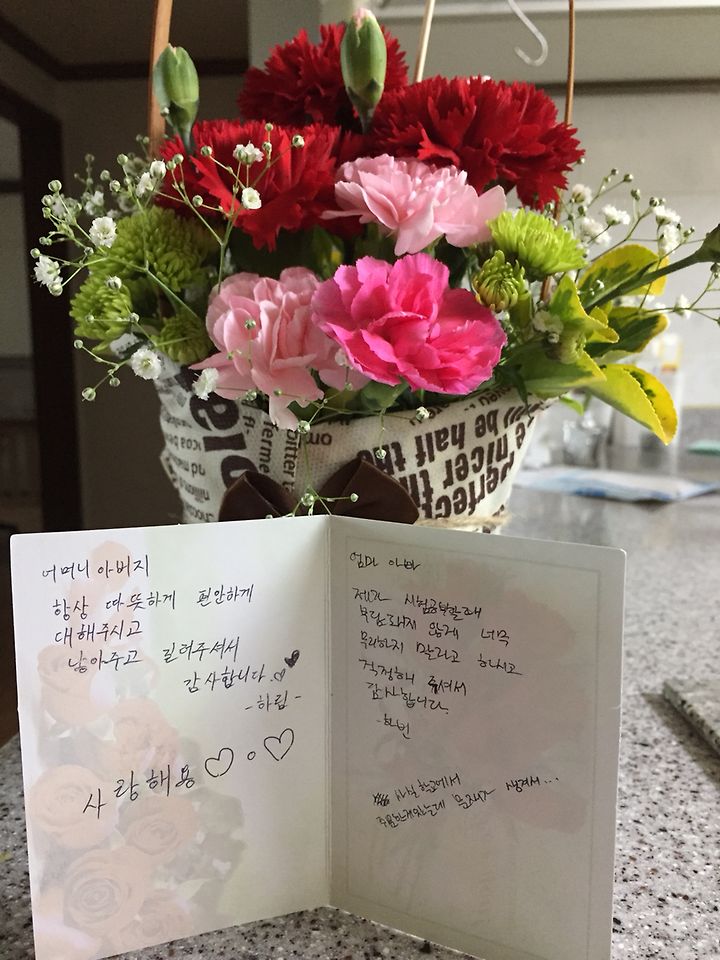 어머니 아버지
항상 따뜻하게 편안하게
대해주시고
낳아주고 길러주셔서
감사합니다.
-하림-
사랑해용♡。♡
엄마 아빠
제가 시험공부할때
부담돼지 않게 너무
무리하지 말라고 하시고
걱정해 주셔서
감사합니다.
-하빈
사실 학교에서
주문한게있는데 문제가 생겨서...
perfect th
e nicer
be half the
bitter